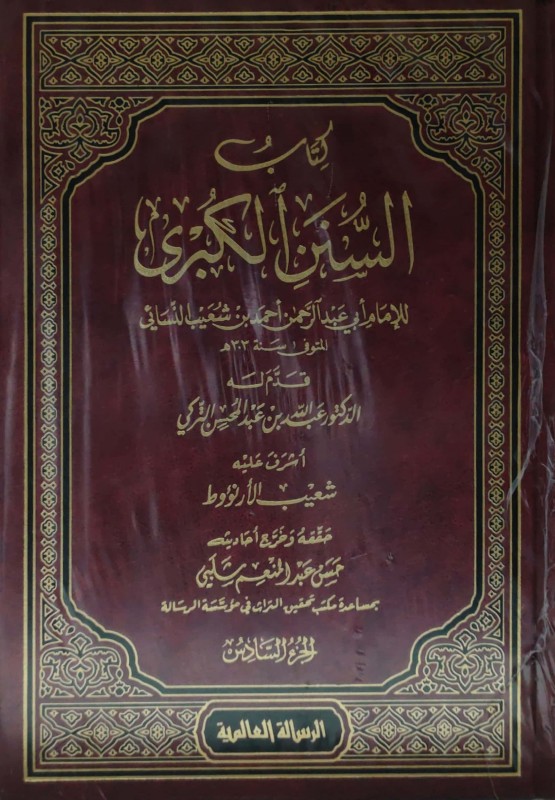 كِتَابُ
السُّنَنِ الكُبْرَى
للإمام أبي عبد الرحمن أحمد بن شعيب النسائي
المتوفى سنة ٣٠٣هـ
قدّم له
الدكتور عبد الله بن عبد المحسن التركي
أشرف عليه
شعيب الأرنؤوط
حققه وخرّج أحاديثه
حسن عبد المنعم شلبي
بمساعدة مكتب تحقيق التراث في مؤسسة الرسالة
الجزء السادس
الرسالة العالمية